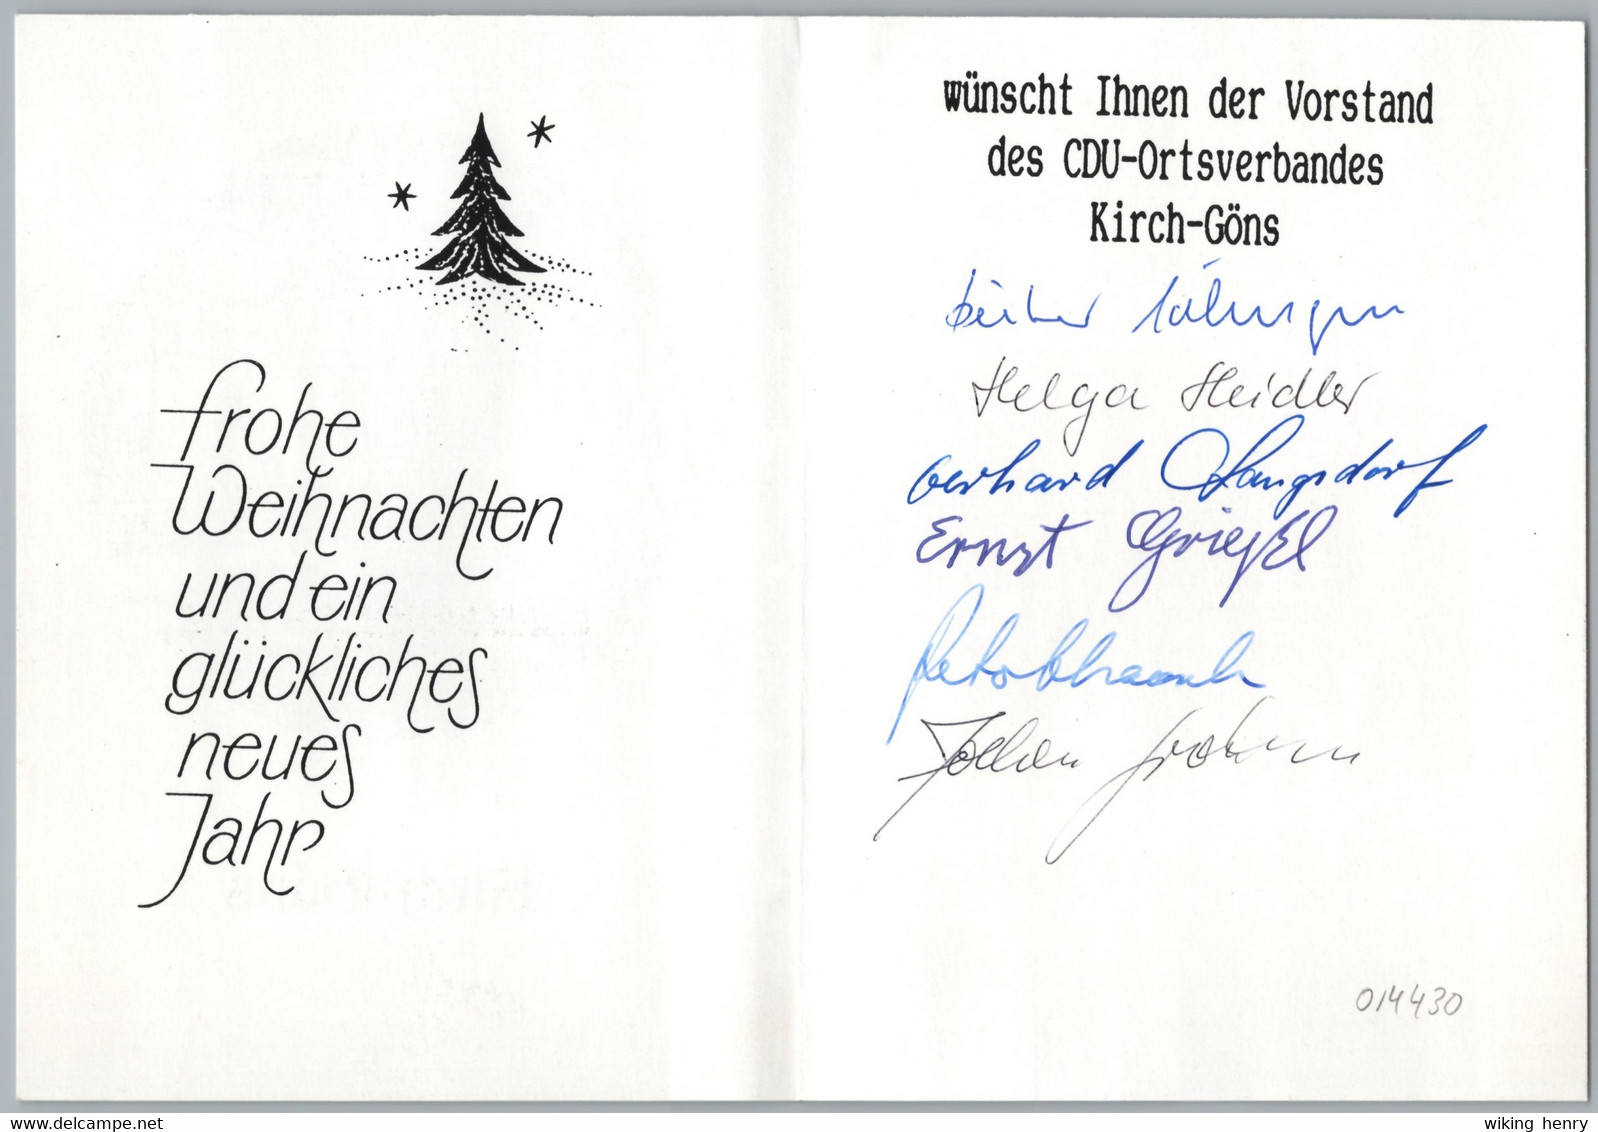 frohe
Weihnachten
und ein
glückliches
neues
Jahr
wünscht Ihnen der Vorstand
des CDU-Ortsverbandes
Kirch-Göns
Helga Heidler
Gerhard Langsdorf
Ernst
014430
delcampe.net
wiking henry